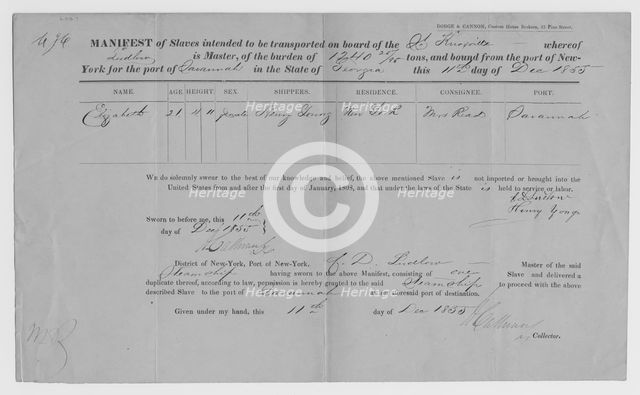 DODGE & CANNON, Custom House Brokers, 45 Pine Street.
MANIFEST of Slaves intended to be transported on board of the St Knoxville whereof
Ludlow is Master, of the burden of 1240 25/95 tons, and bound from the port of New-
York for the port of Savannah in the State of Georgia this 11th day of Dec 1855
NAME. AGE HEIGHT. SEX. SHIPPERS. RESIDENCE. CONSIGNEE. PORT.
Elizabeth 21 4 11 female Henry Yonge New York Mrs Read Savannah
WE do solemnly swear to the best of our knowledge and belief, the above mentioned Slave is not imported or brought into the
United States from and after the first day of January, 1808, and that under the laws of the State is held to service or labor.
Ludlow
Henry Yonge
Sworn to before me, this 11th
day of Dec 1855
District of New-York, Port of New-York. C. D. Ludlow Master of the said
Steamship having sworn to the above Manifest, consisting of one Slave and delivered a
duplicate thereof, according to law, permission is hereby granted to the said Steamship to proceed with the above
described Slave to the port of Savannah the aforesaid port of destination.
Given under my hand, this 11th day of Dec 1855
Collector.
Heritage
Heritage
Heritage
Heritage
Heritage
Heritage